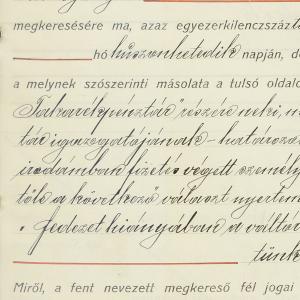 megkeresésére ma, azaz egyezerkilenczszázt
hó huszonhetedik napján, d
a melynek szószerinti másolata a tulsó oldalo
Takarékpénztár" részére neki, m
tár igazgatójának – határozat
irodámban fizetés végett személy
től a következő választ nyertem
„fedezet hiányában a váltót
tünk
Miről, a fent nevezett megkereső fél jogai